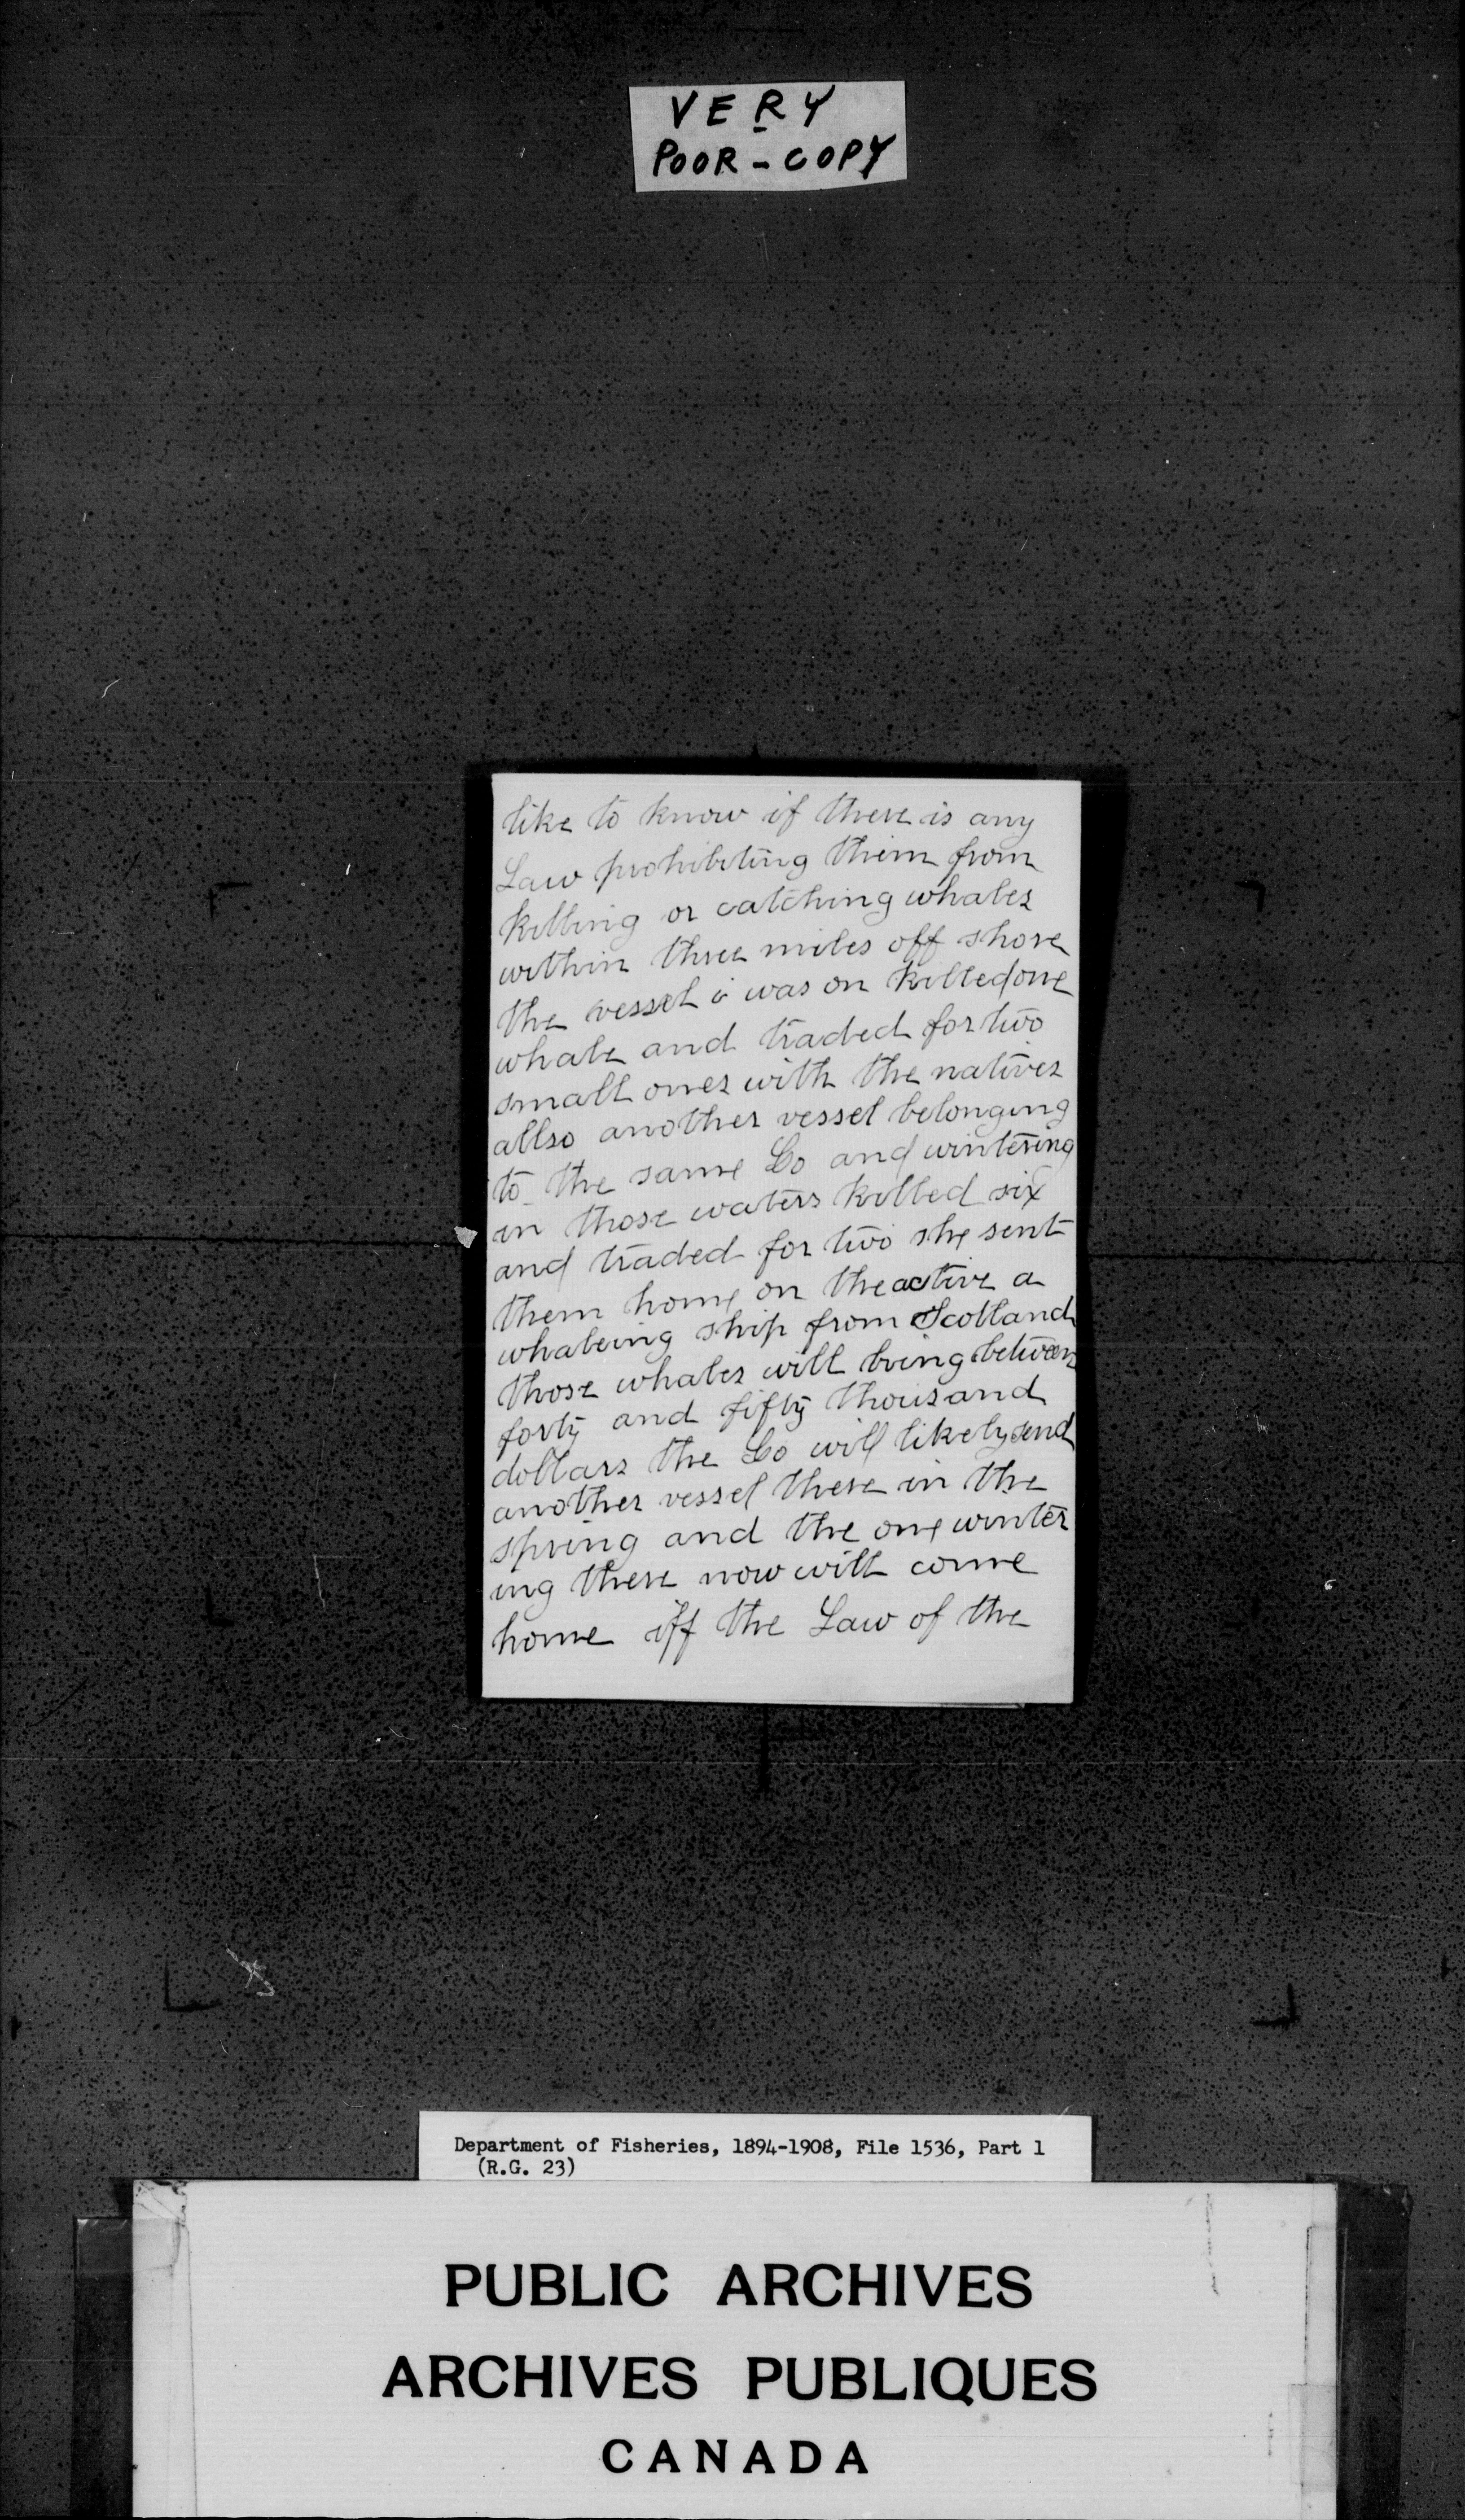 VERY
POOR - COPY
like to know if there is any
Law prohibiting them from
killing or catching whales
within three miles off shore
the vessel i was on killed one
whale and traded for two
small ones with the natives
allso another vessel belonging
to the same Co and wintering
in those waters killed six
and traded for two she sent
them home on the active a
whaleing ship from Scotland
those whales will bring between
forty and fifty thousand
dollars the Co will likely send
another vessel there in the
spring and the one winter
ing there now will come
home iff the Law of the
Department of Fisheries, 1894-1908, File 1536, Part 1
(R.G. 23)
PUBLIC ARCHIVES
ARCHIVES PUBLIQUES
CANADA